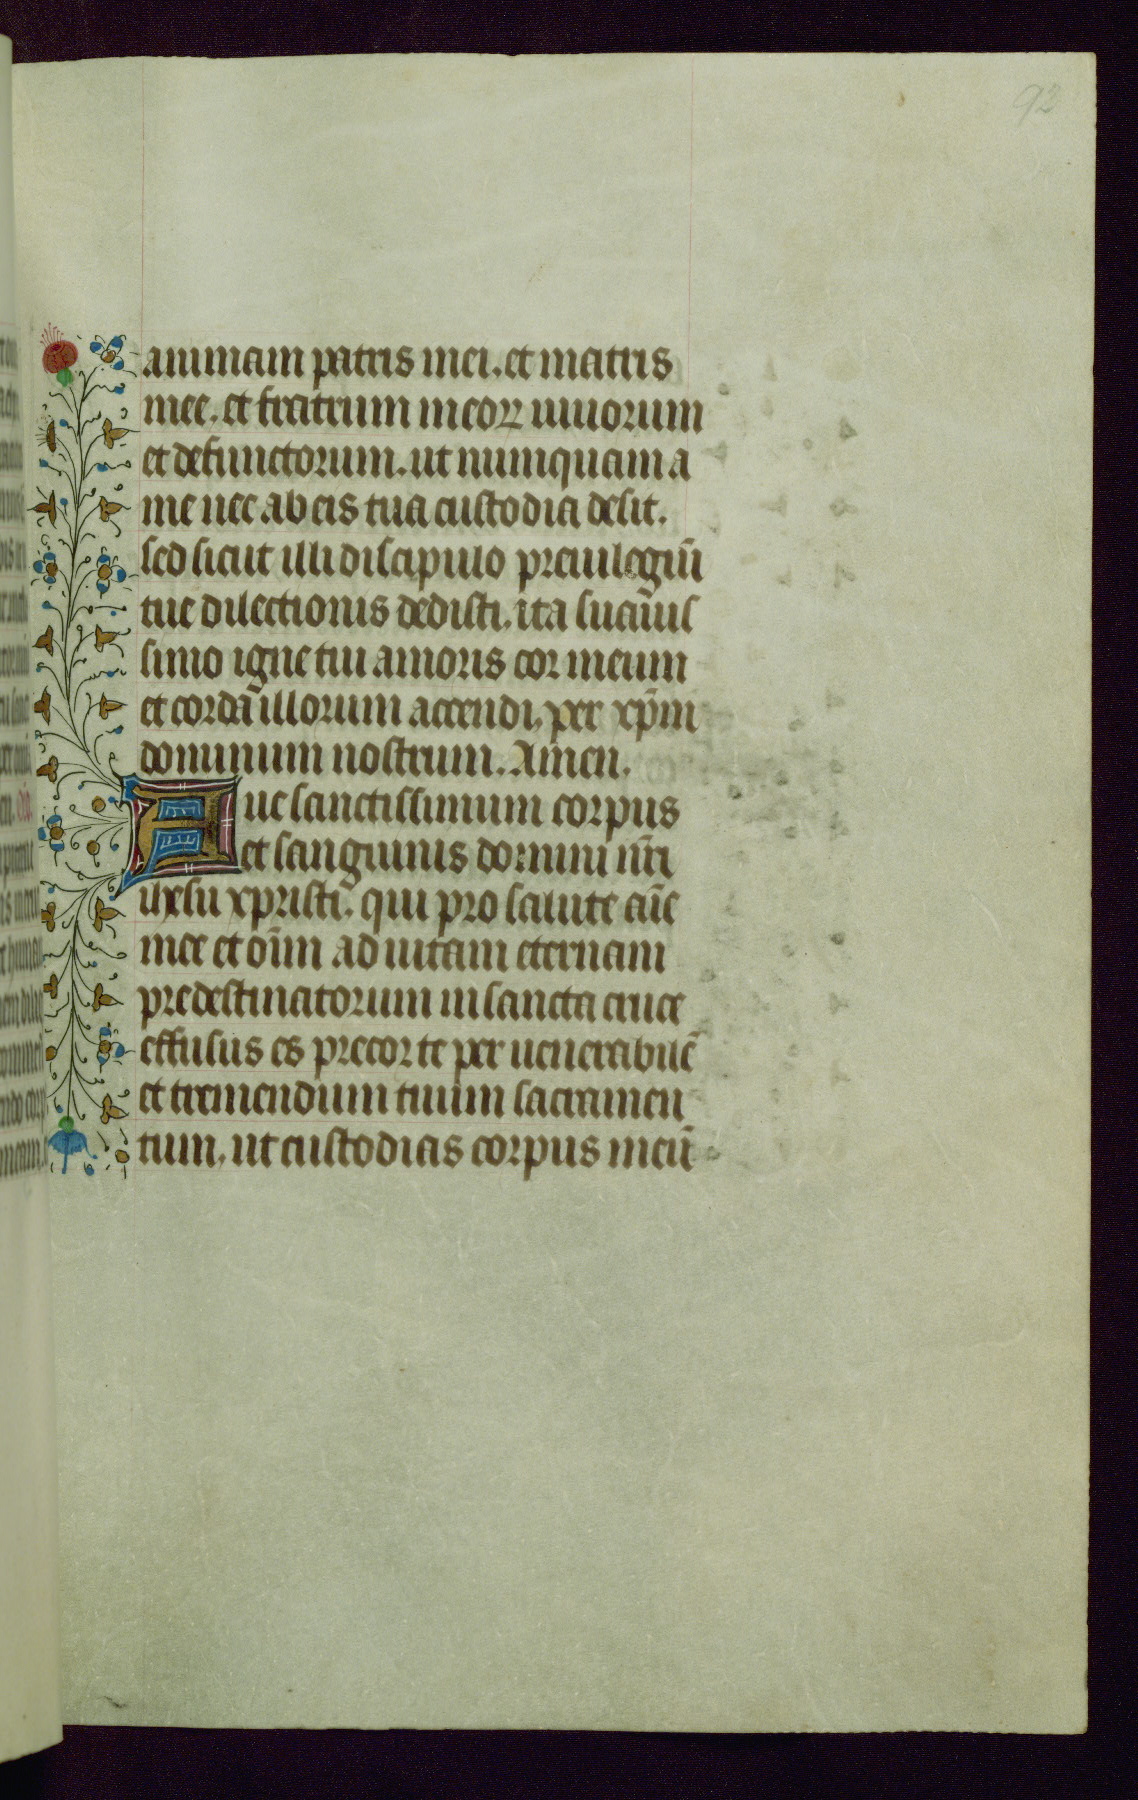 92
animam patris mei. et matris
mee. et fratrum meoꝝ uiuorum
et defunctorum. ut numquam a
me nec ab eis tua custodia desit.
sed sicut illi discipulo preiulegiū
tue dilectionis dedisti. ita suauis
simo igne tui amoris cor meum
et corda illorum accendi. per xp̄m
dominum nostrum. Amen.
Aue sanctissimum corpus
et sanguinis domini nr̄i
ihesu xpristi. qui pro salute aīe
mee et oīm ad uitam eternam
predestinatorum in sancta cruce
effusus es precor te per uenerabile
et tremendum tuum sacramen
tum. ut custodias corpus meū